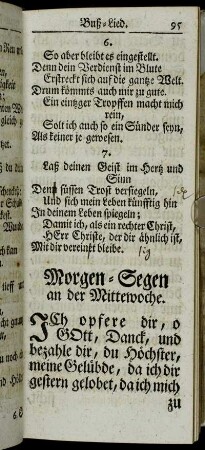 Buß-Lied. 95
6.
So aber bleibt es eingestellt.
Denn dein Verdienst im Blute
Erstreckt sich auf die gantze Welt.
Drum kömmts auch mir zu gute.
Ein eintzger Tropffen macht mich
rein,
Solt ich auch so ein Sünder seyn,
Als keiner je gewesen.
7.
Laß deinen Geist im Hertz und
Sinn
Den süssen Trost versiegeln,
Und sich mein Leben künfftig hin
In deinem Leben spiegeln;
Damit ich, als ein rechter Christ,
HErr Christe, der dir ähnlich ist,
Mit dir vereinet bleibe.
Morgen-Segen
an der Mittewoche.
ICh opfere dir, o
GOtt, Danck, und
bezahle dir, du Höchster,
meine Gelübde, da ich dir
gestern gelobet, da ich mich
zu